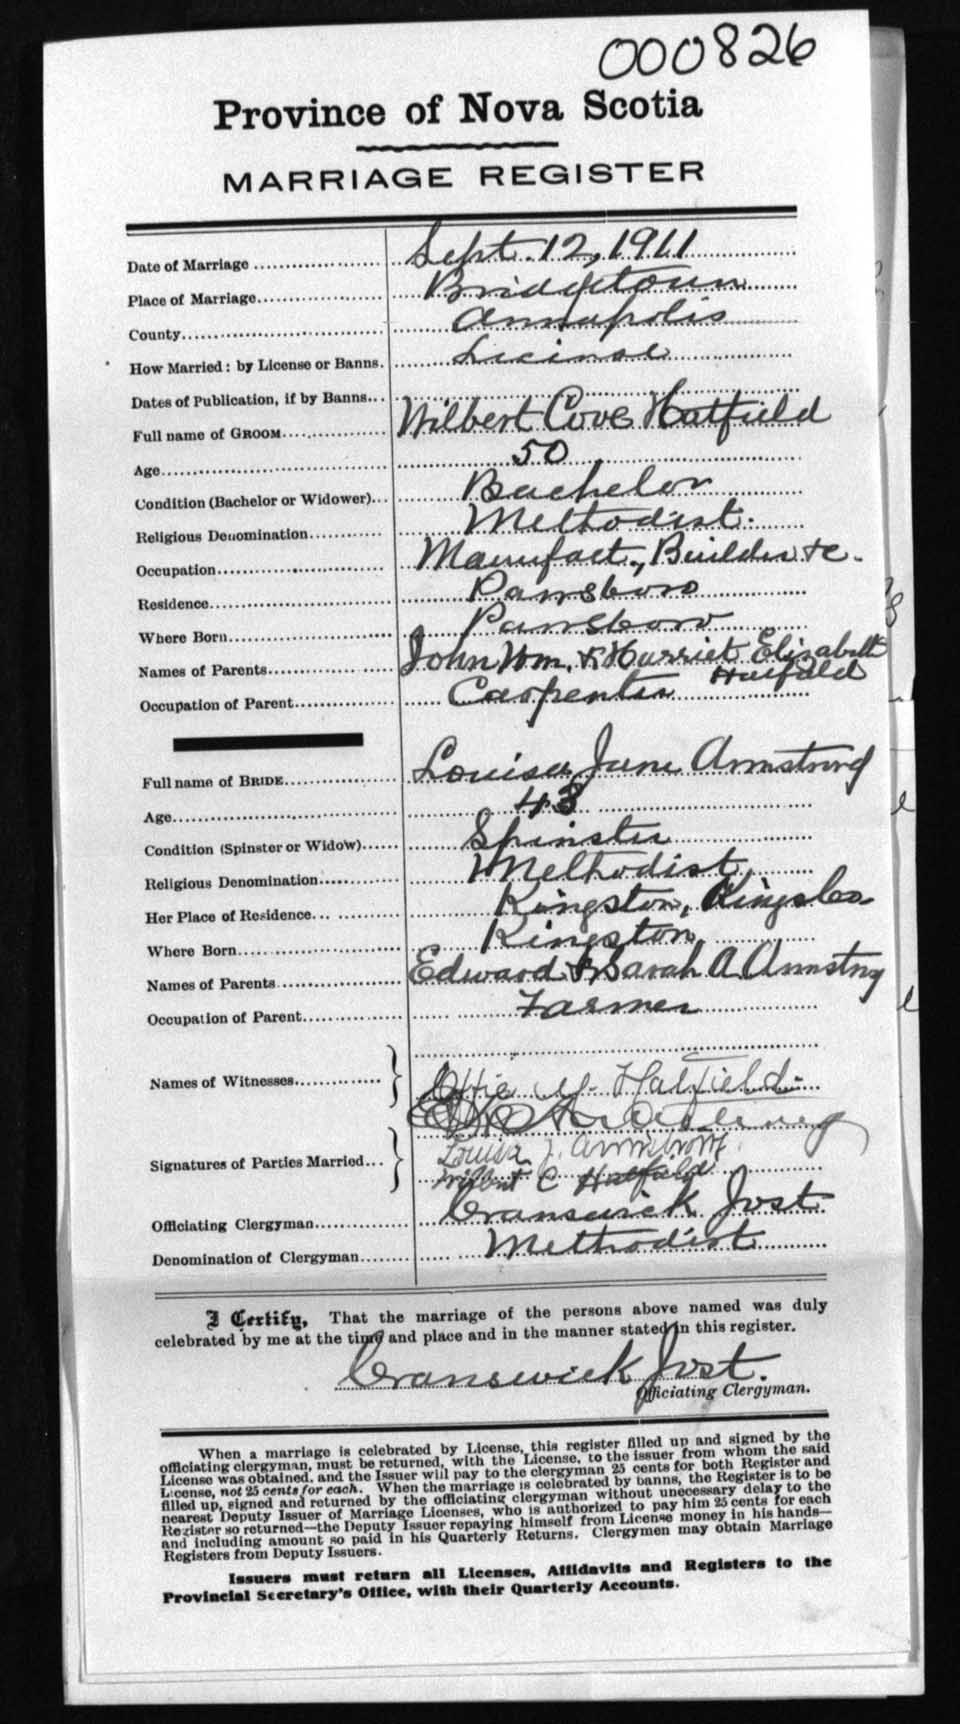 000826
Province of Nova Scotia
MARRIAGE REGISTER
Date of Marriage Sept. 12, 1911
Place of Marriage Bridgetown
County Annapolis
How Married: by License or Banns. License
Dates of Publication, if by Banns
Full name of GROOM Wilbert Cove Hatfield
Age 50
Condition (Bachelor or Widower) Bachelor
Religious Denomination Methodist.
Occupation Manufact., Builder &c.
Residence Parrsboro
Where Born Parrsboro
Names of Parents John Wm. & Harriet Elizabeth
Hatfield
Occupation of Parent Carpenter
Full name of BRIDE Louisa Jane Armstrong
Age 43
Condition (Spinster or Widow) Spinster
Religious Denomination Methodist
Her Place of Residence Kingston, Kings Co
Where Born Kingston
Names of Parents Edward & Sarah A. Armstrong
Occupation of Parent Farmer
Names of Witnesses Effie M. Hatfield
Armstrong
Signatures of Parties Married Louisa J. Armstrong.
Wilbert C Hatfield
Officiating Clergyman Cranswick Jost
Denomination of Clergyman Methodist
I Certify, That the marriage of the persons above named was duly
celebrated by me at the time and place and in the manner stated in this register.
Cranswick Jost.
Officiating Clergyman.
When a marriage is celebrated by License, this register filled up and signed by the
officiating clergyman, must be returned, with the License, to the issuer from whom the said
License was obtained, and the Issuer will pay to the clergyman 25 cents for both Register and
License, not 25 cents for each. When the marriage is celebrated by banns, the Register is to be
filled up, signed and returned by the officiating clergyman without unnecessary delay to the
nearest Deputy Issuer of Marriage Licenses, who is authorized to pay him 25 cents for each
Register so returned—the Deputy Issuer repaying himself from License money in his hands—
and including amount so paid in his Quarterly Returns. Clergymen may obtain Marriage
Registers from Deputy Issuers.
Issuers must return all Licenses, Affidavits and Registers to the
Provincial Secretary's Office, with their Quarterly Accounts.